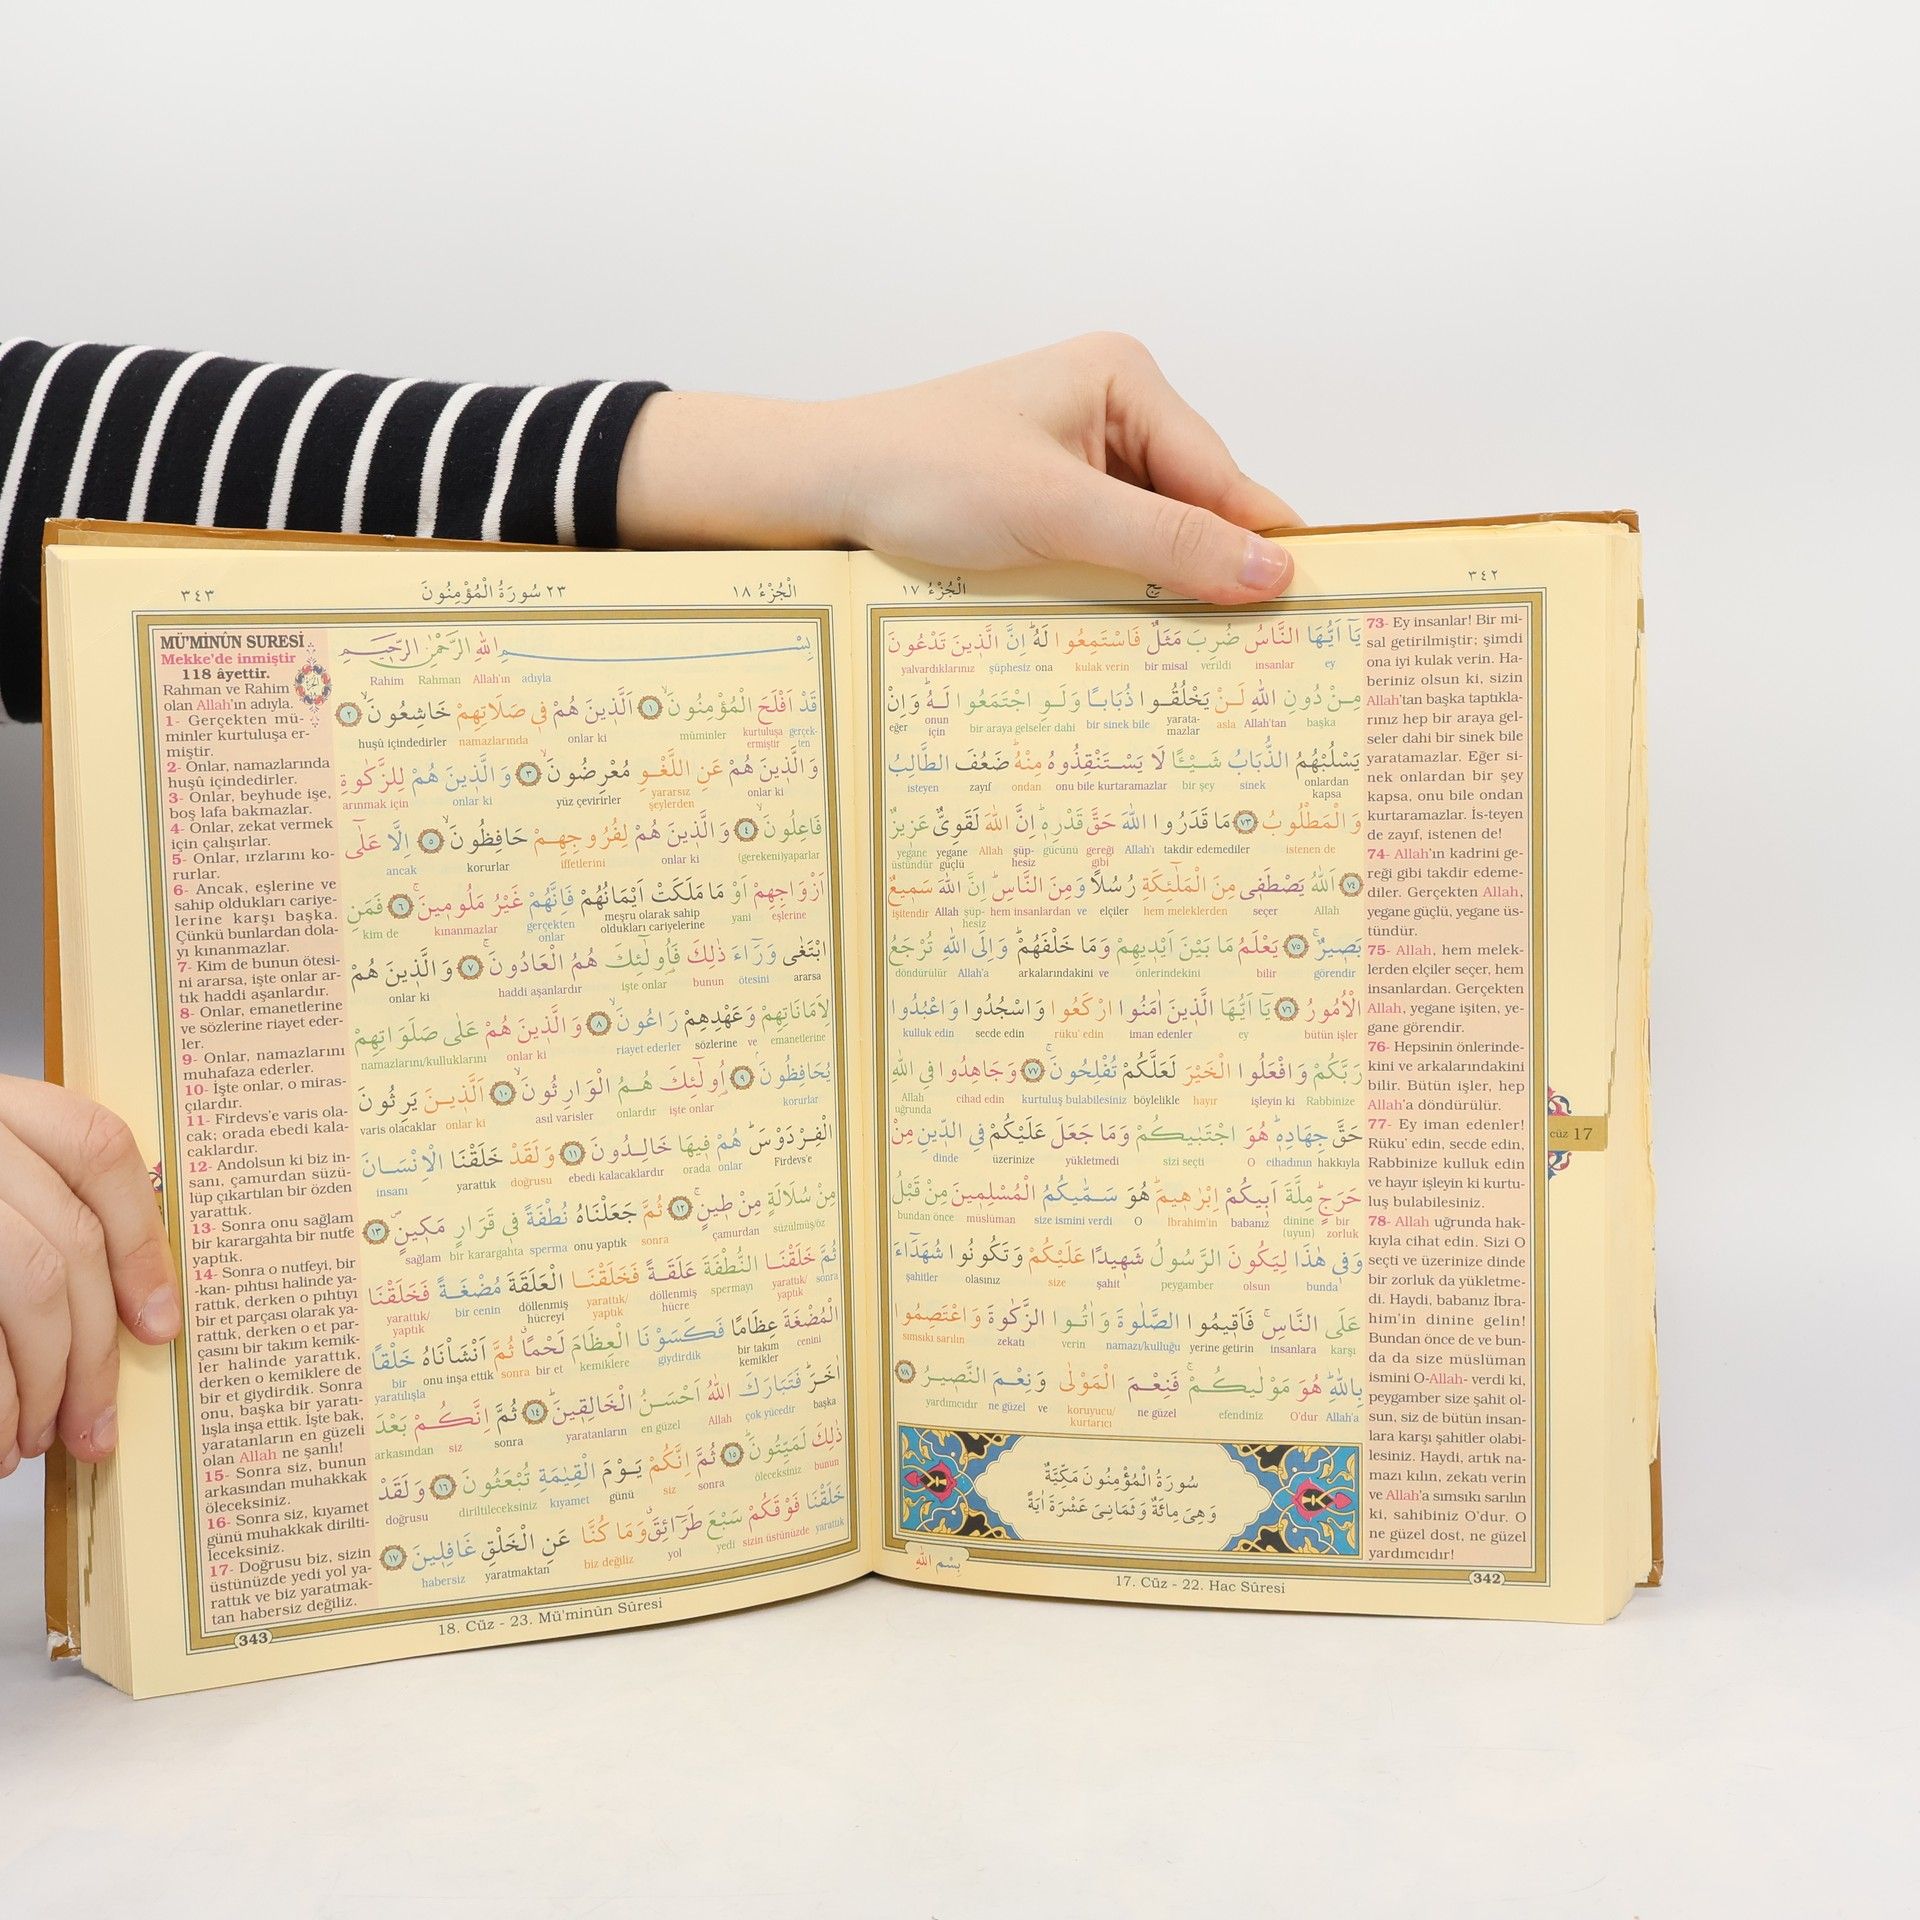 ٣٤٢
الْجُزْءُ ١٧
يَٓا اَيُّهَا النَّاسُ ضُرِبَ مَثَلٌ فَاسْتَمِعُوا لَهُۜ اِنَّ الَّذ۪ينَ تَدْعُونَ
yalvardıklarınız şüphesiz ona kulak verin bir misal verildi insanlar ey
مِنْ دُونِ اللّٰهِ لَنْ يَخْلُقُوا ذُبَابًا وَلَوِ اجْتَمَعُوا لَهُۜ وَاِنْ
eğer onun için bir araya gelseler dahi bir sinek bile yarata-mazlar asla Allah'tan başka
يَسْلُبْهُمُ الذُّبَابُ شَيْـًٔا لَا يَسْتَنْقِذُوهُ مِنْهُۜ ضَعُفَ الطَّالِبُ
isteyen zayıf ondan onu bile kurtaramazlar bir şey sinek onlardan kapsa
وَالْمَطْلُوبُ ﴿٧٣﴾ مَا قَدَرُوا اللّٰهَ حَقَّ قَدْرِه۪ۜ اِنَّ اللّٰهَ لَقَوِيٌّ عَز۪يزٌ
yegane üstündür yegane güçlü Allah şüp-hesiz gücünü gereği gibi Allah'ı takdir edemediler istenen de
﴿٧٤﴾ اَللّٰهُ يَصْطَف۪ي مِنَ الْمَلٰٓئِكَةِ رُسُلًا وَمِنَ النَّاسِۜ اِنَّ اللّٰهَ سَم۪يعٌ
işitendir Allah şüp-hesiz hem insanlardan ve elçiler hem meleklerden seçer Allah
بَص۪يرٌۚ ﴿٧٥﴾ يَعْلَمُ مَا بَيْنَ اَيْد۪يهِمْ وَمَا خَلْفَهُمْۜ وَاِلَى اللّٰهِ تُرْجَعُ
döndürülür Allah'a arkalarındakini ve önlerindekini bilir görendir
الْاُمُورُ ﴿٧٦﴾ يَٓا اَيُّهَا الَّذ۪ينَ اٰمَنُوا ارْكَعُوا وَاسْجُدُوا وَاعْبُدُوا
kulluk edin secde edin rüku' edin iman edenler ey bütün işler
رَبَّكُمْ وَافْعَلُوا الْخَيْرَ لَعَلَّكُمْ تُفْلِحُونَۚ ﴿٧٧﴾ وَجَاهِدُوا فِي اللّٰهِ
Allah uğrunda cihad edin kurtuluş bulabilesiniz böylelikle hayır işleyin ki Rabbinize
حَقَّ جِهَادِه۪ۜ هُوَ اجْتَبٰيكُمْ وَمَا جَعَلَ عَلَيْكُمْ فِي الدّ۪ينِ مِنْ
dinde üzerinize yükletmedi sizi seçti O cihadının hakkıyla
حَرَجٍۜ مِلَّةَ اَب۪يكُمْ اِبْرٰه۪يمَۜ هُوَ سَمّٰيكُمُ الْمُسْلِم۪ينَ مِنْ قَبْلُ
bundan önce müslüman size ismini verdi O Ibrahim'in babanız dinine (uyun) bir zorluk
وَف۪ي هٰذَا لِيَكُونَ الرَّسُولُ شَه۪يدًا عَلَيْكُمْ وَتَكُونُوا شُهَدَٓاءَ
şahitler olasınız size şahit peygamber olsun bunda
عَلَى النَّاسِۚ فَاَق۪يمُوا الصَّلٰوةَ وَاٰتُوا الزَّكٰوةَ وَاعْتَصِمُوا
sımsıkı sarılın zekatı verin namazı/kulluğu yerine getirin insanlara karşı
بِاللّٰهِۜ هُوَ مَوْلٰيكُمْۚ فَنِعْمَ الْمَوْلٰى وَنِعْمَ النَّص۪يرُ ﴿٧٨﴾
yardımcıdır ne güzel ve koruyucu/kurtarıcı ne güzel efendiniz O'dur Allah'a
سُورَةُ الْمُؤْمِنُونَ مَكِّيَّةٌ
وَهِيَ مِائَةٌ وَثَمَانِيَ عَشْرَةَ اٰيَةً
بِسْمِ اللّٰهِ
73- Ey insanlar! Bir mi-
sal getirilmiştir; şimdi
ona iyi kulak verin. Ha-
beriniz olsun ki, sizin
Allah'tan başka taptıkla-
rınız hep bir araya gel-
seler dahi bir sinek bile
yaratamazlar. Eğer si-
nek onlardan bir şey
kapsa, onu bile ondan
kurtaramazlar. İs-teyen
de zayıf, istenen de!
74- Allah'ın kadrini ge-
reği gibi takdir edeme-
diler. Gerçekten Allah,
yegane güçlü, yegane üs-
tündür.
75- Allah, hem melek-
lerden elçiler seçer, hem
insanlardan. Gerçekten
Allah, yegane işiten, ye-
gane görendir.
76- Hepsinin önlerinde-
kini ve arkalarındakini
bilir. Bütün işler, hep
Allah'a döndürülür.
77- Ey iman edenler!
Rüku' edin, secde edin,
Rabbinize kulluk edin
ve hayır işleyin ki kurtu-
luş bulabilesiniz.
78- Allah uğrunda hak-
kıyla cihat edin. Sizi O
seçti ve üzerinize dinde
bir zorluk da yükletme-
di. Haydi, babanız İbra-
him'in dinine gelin!
Bundan önce de ve bun-
da da size müslüman
ismini O-Allah- verdi ki,
peygamber size şahit ol-
sun, siz de bütün insan-
lara karşı şahitler olabi-
lesiniz. Haydi, artık na-
mazı kılın, zekatı verin
ve Allah'a sımsıkı sarılın
ki, sahibiniz O'dur. O
ne güzel dost, ne güzel
yardımcıdır!
cüz 17
17. Cüz - 22. Hac Sûresi
342
الْجُزْءُ ١٨
٢٣ سُورَةُ الْمُؤْمِنُونَ
٣٤٣
بِسْمِ اللّٰهِ الرَّحْمٰنِ الرَّح۪يمِ
Rahim Rahman Allah'ın adıyla
قَدْ اَفْلَحَ الْمُؤْمِنُونَۙ ﴿١﴾ اَلَّذ۪ينَ هُمْ ف۪ي صَلَاتِهِمْ خَاشِعُونَۙ ﴿٢﴾
huşû içindedirler namazlarında onlar ki müminler kurtuluşa ermiştir gerçek-ten
وَالَّذ۪ينَ هُمْ عَنِ اللَّغْوِ مُعْرِضُونَۙ ﴿٣﴾ وَالَّذ۪ينَ هُمْ لِلزَّكٰوةِ
arınmak için onlar ki yüz çevirirler yararsız şeylerden onlar ki
فَاعِلُونَۙ ﴿٤﴾ وَالَّذ۪ينَ هُمْ لِفُرُوجِهِمْ حَافِظُونَۙ ﴿٥﴾ اِلَّا عَلٰٓى
ancak korurlar iffetlerini onlar ki (gerekeni)yaparlar
اَزْوَاجِهِمْ اَوْ مَا مَلَكَتْ اَيْمَانُهُمْ فَاِنَّهُمْ غَيْرُ مَلُوم۪ينَۚ ﴿٦﴾ فَمَنِ
kim de kınanmazlar gerçekten onlar meşru olarak sahip oldukları cariyelerine yani eşlerine
ابْتَغٰى وَرَٓاءَ ذٰلِكَ فَاُو۬لٰٓئِكَ هُمُ الْعَادُونَۚ ﴿٧﴾ وَالَّذ۪ينَ هُمْ
onlar ki haddi aşanlardır işte onlar bunun ötesini ararsa
لِاَمَانَاتِهِمْ وَعَهْدِهِمْ رَاعُونَۙ ﴿٨﴾ وَالَّذ۪ينَ هُمْ عَلٰى صَلَوَاتِهِمْ
namazlarını/kulluklarını onlar ki riayet ederler sözlerine ve emanetlerine
يُحَافِظُونَۢ ﴿٩﴾ اُو۬لٰٓئِكَ هُمُ الْوَارِثُونَۙ ﴿١٠﴾ اَلَّذ۪ينَ يَرِثُونَ
varis olacaklar onlar ki asıl varisler onlardır işte onlar korurlar
الْفِرْدَوْسَۜ هُمْ ف۪يهَا خَالِدُونَ ﴿١١﴾ وَلَقَدْ خَلَقْنَا الْاِنْسَانَ
insanı yarattık doğrusu ebedi kalacaklardır orada onlar Firdevs'e
مِنْ سُلَالَةٍ مِنْ ط۪ينٍۚ ﴿١٢﴾ ثُمَّ جَعَلْنَاهُ نُطْفَةً ف۪ي قَرَارٍ مَك۪ينٍۖ ﴿١٣﴾
sağlam bir karargahta sperma onu yaptık sonra çamurdan süzülmüş/öz
ثُمَّ خَلَقْنَا النُّطْفَةَ عَلَقَةً فَخَلَقْنَا الْعَلَقَةَ مُضْغَةً فَخَلَقْنَا
yarattık/yaptık bir cenin döllenmiş hücreyi yarattık/yaptık döllenmiş hücre spermayı yarattık/yaptık sonra
الْمُضْغَةَ عِظَامًا فَكَسَوْنَا الْعِظَامَ لَحْمًاۗ ثُمَّ اَنْشَأْنَاهُ خَلْقًا
bir yaratılışla onu inşa ettik sonra bir et kemiklere giydirdik bir takım kemikler cenini
اٰخَرَۜ فَتَبَارَكَ اللّٰهُ اَحْسَنُ الْخَالِق۪ينَۜ ﴿١٤﴾ ثُمَّ اِنَّكُمْ بَعْدَ
arkasından siz sonra yaratanların en güzel Allah çok yücedir başka
ذٰلِكَ لَمَيِّتُونَۜ ﴿١٥﴾ ثُمَّ اِنَّكُمْ يَوْمَ الْقِيٰمَةِ تُبْعَثُونَ ﴿١٦﴾ وَلَقَدْ
doğrusu diriltileceksiniz kıyamet günü siz sonra öleceksiniz bunun
خَلَقْنَا فَوْقَكُمْ سَبْعَ طَرَٓائِقَۗ وَمَا كُنَّا عَنِ الْخَلْقِ غَافِل۪ينَ ﴿١٧﴾
habersiz yaratmaktan biz değiliz yol yedi sizin üstünüzde yarattık
MÜ'MİNÛN SURESİ
Mekke'de inmiştir
118 âyettir.
Rahman ve Rahim
olan Allah'ın adıyla.
1- Gerçekten mü-
minler kurtuluşa er-
miştir.
2- Onlar, namazlarında
huşû içindedirler.
3- Onlar, beyhude işe,
boş lafa bakmazlar.
4- Onlar, zekat vermek
için çalışırlar.
5- Onlar, ırzlarını ko-
rurlar.
6- Ancak, eşlerine ve
sahip oldukları cariye-
lerine karşı başka.
Çünkü bunlardan dola-
yı kınanmazlar.
7- Kim de bunun ötesi-
ni ararsa, işte onlar ar-
tık haddi aşanlardır.
8- Onlar, emanetlerine
ve sözlerine riayet eder-
ler.
9- Onlar, namazlarını
muhafaza ederler.
10- İşte onlar, o miras-
çılardır.
11- Firdevs'e varis ola-
cak; orada ebedi kala-
caklardır.
12- Andolsun ki biz in-
sanı, çamurdan süzü-
lüp çıkartılan bir özden
yarattık.
13- Sonra onu sağlam
bir karargahta bir nutfe
yaptık.
14- Sonra o nutfeyi, bir
-kan- pıhtısı halinde ya-
rattık, derken o pıhtıyı
bir et parçası olarak ya-
rattık, derken o et par-
çasını bir takım kemik-
ler halinde yarattık,
derken o kemiklere de
bir et giydirdik. Sonra
onu, başka bir yaratı-
lışla inşa ettik. İşte bak,
yaratanların en güzeli
olan Allah ne şanlı!
15- Sonra siz, bunun
arkasından muhakkak
öleceksiniz.
16- Sonra siz, kıyamet
günü muhakkak dirilti-
leceksiniz.
17- Doğrusu biz, sizin
üstünüzde yedi yol ya-
rattık ve biz yaratmak-
tan habersiz değiliz.
18. Cüz - 23. Mü'minûn Sûresi
343